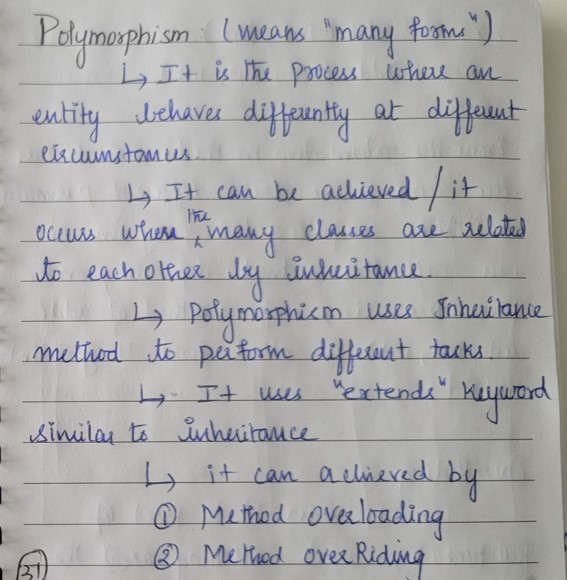 Polymorphism : (means "many forms")
↳ It is the process where an
entity behaves differently at different
circumstances.
↳ It can be achieved / it
occurs when the many classes are related
to each other by inheritance.
↳ Polymorphism uses Inheritance
method to perform different tasks.
↳ It uses "extends" keyword
similar to inheritance
↳ it can achieved by
① Method overloading
② Method overRiding
31